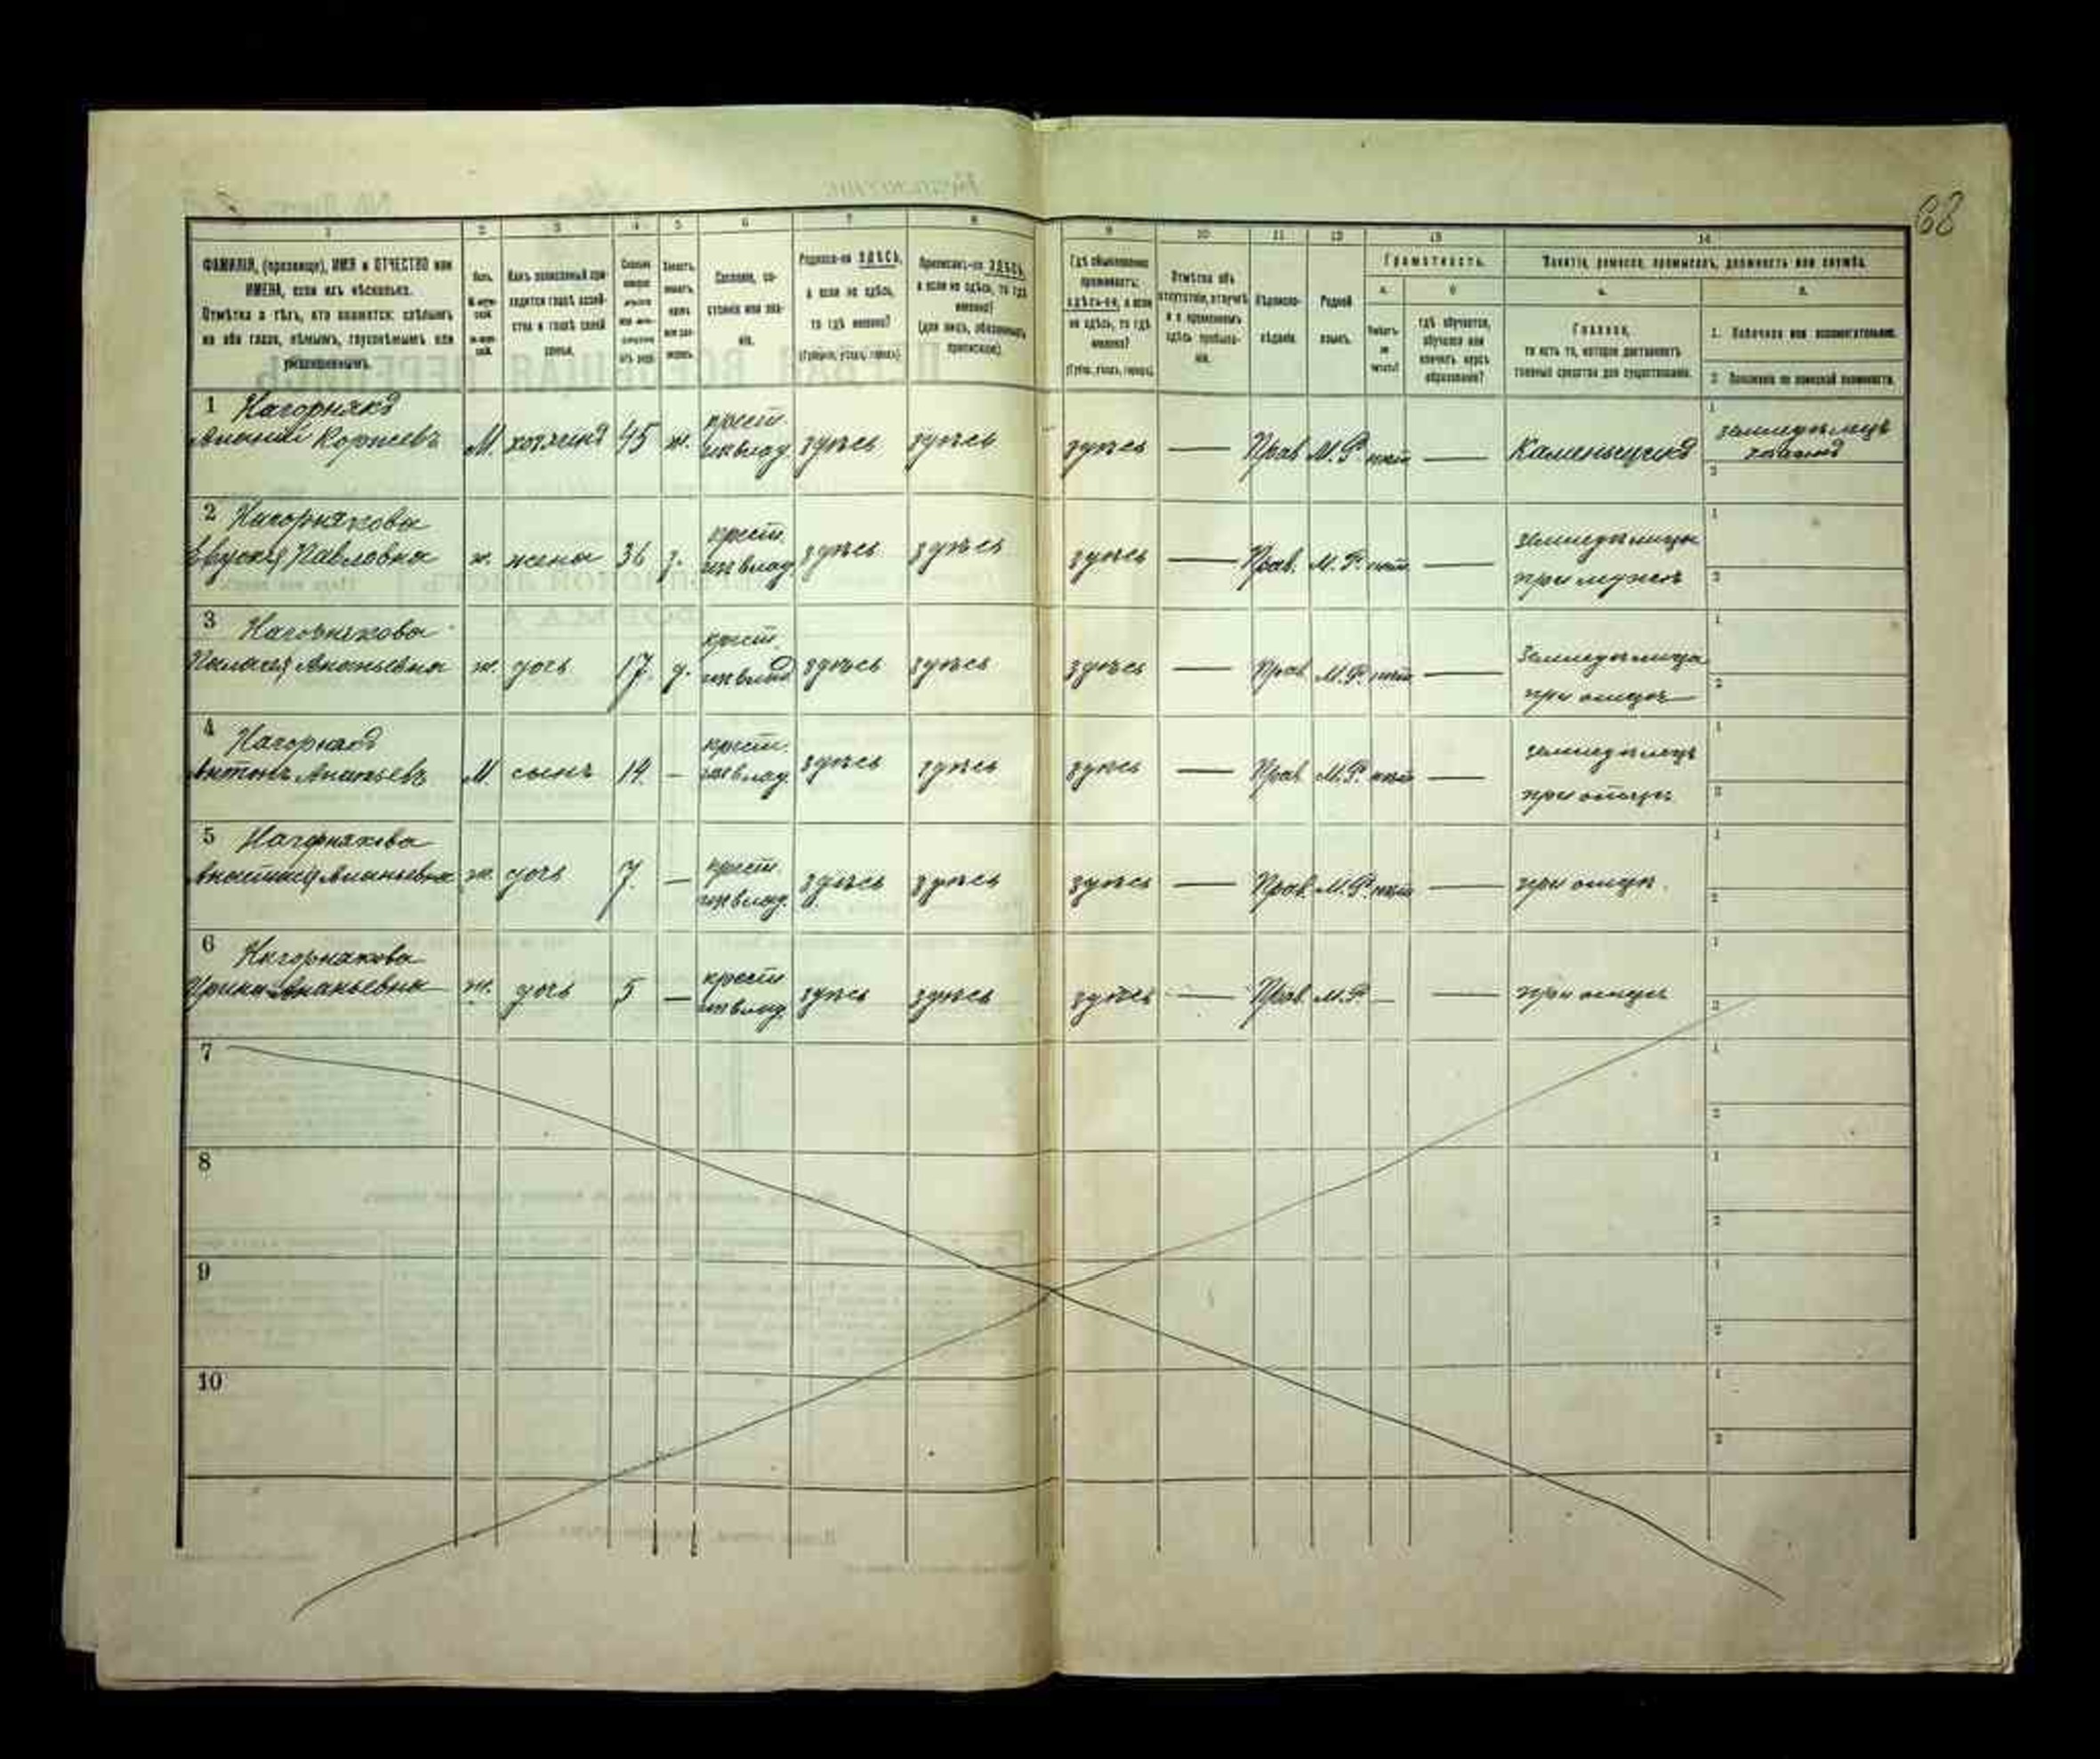 68
1 2 3 4 5 6 7 8 9 10 11 12 13 14
ФАМИЛІЯ, (прозвище), ИМЯ и ОТЧЕСТВО или
ИМЕНА, если ихъ нѣсколько.
Отмѣтка о тѣхъ, кто окажется: слѣпымъ
на оба глаза, нѣмымъ, глухонѣмымъ или
умалишеннымъ.
Полъ.
Какъ записанный при-
ходится главѣ хозяй-
ства и главѣ своей
семьи.
Сословіе, со-
стояніе или зва-
ніе.
Родился-ли ЗДѢСЬ,
а если не здѣсь,
то гдѣ именно?
(Губернія, уѣздъ, городъ)
Приписанъ-ли ЗДѢСЬ,
а если не здѣсь, то гдѣ
именно?
(для лицъ, обязанныхъ
припиской).
Гдѣ обыкновенно
проживаетъ:
здѣсь-ли, а если
не здѣсь, то гдѣ
именно?
(Губер., уѣздъ, городъ)
Отмѣтка объ
отсутствіи, отлучкѣ
и о временномъ
здѣсь пребыва-
ніи.
Вѣроиспо-
вѣданіе.
Родной
языкъ.
Грамотность.
а. б.
Умѣетъ-
ли
читать?
гдѣ обучается,
обучался или
кончилъ курсъ
образованія?
Занятіе, ремесло, промыселъ, должность или служба.
а. б.
Главное,
то есть то, которое доставляетъ
главныя средства для существованія.
1. Побочное или вспомогательное.
2. Положеніе по воинской повинности.
1 Нагорнякъ
Ананій Корнѣевъ М. хозяинъ 45 ж. крест. здѣсь здѣсь здѣсь — Прав. М. Р. нѣтъ — Каменьщикъ
1 земледѣлецъ
хозяинъ
2
2 Нагорнякова
Павловна ж. жена 36 з. крест. здѣсь здѣсь здѣсь — Прав. М. Р. нѣтъ —
земледѣлица
при мужѣ
1
2
3 Нагорнякова
Пелагея Ананьевна ж. дочь 17. д. крест. здѣсь здѣсь здѣсь — Прав. М. Р. нѣтъ —
земледѣлица
при отцѣ
1
2
4 Нагорнякъ
Антонъ Ананьевъ М. сынъ 14. — крест. здѣсь здѣсь здѣсь — Прав. М. Р. нѣтъ —
земледѣлецъ
при отцѣ
1
2
5 Нагорнякова
Анастасія Ананьевна ж. дочь 7. — крест. здѣсь здѣсь здѣсь — Прав. М. Р. нѣтъ — при отцѣ.
1
2
6 Нагорнякова
Ирина Ананьевна ж. дочь 5 — крест. здѣсь здѣсь здѣсь — Прав. М. Р. — — при отцѣ
1
2
7
1
2
8
1
2
9
1
2
10
1
2